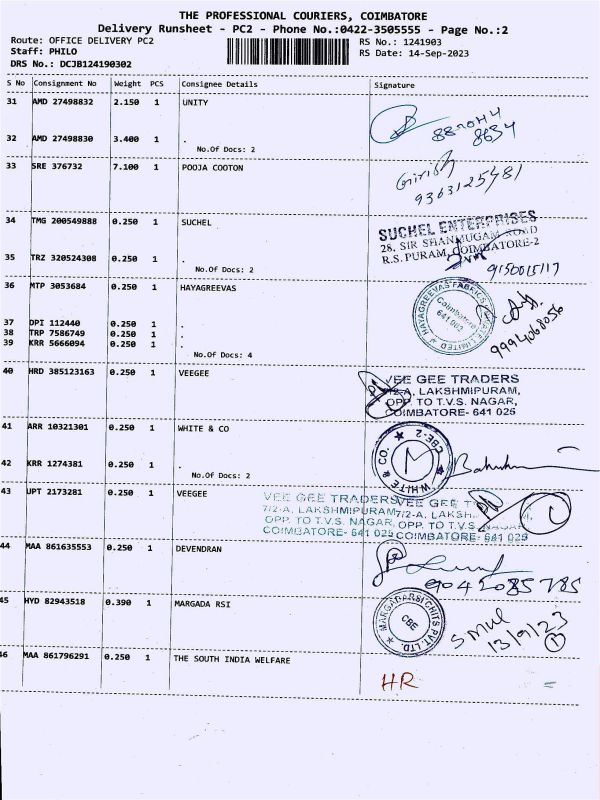 THE PROFESSIONAL COURIERS, COIMBATORE
Delivery Runsheet - PC2 - Phone No.:0422-3505555 - Page No.:2
Route: OFFICE DELIVERY PC2
RS No.: 1241903
Staff: PHILO
RS Date: 14-Sep-2023
DRS No.: DCJB124190302
S No Consignment No Weight PCS Consignee Details Signature
31 AMD 27498832 2.150 1 UNITY
32 AMD 27498830 3.400 1 .
No.Of Docs: 2
33 SRE 376732 7.100 1 POOJA COOTON
Girish
9363125481
34 TMG 200549888 0.250 1 SUCHEL
SUCHEL ENTERPRISES
28, SIR SHANMUGAM ROAD
R.S. PURAM, COIMBATORE-2
35 TRZ 320524308 0.250 1 .
No.Of Docs: 2
9150015117
36 MTP 3053684 0.250 1 HAYAGREEVAS
HAYAGREEVAS FABRICS
Coimbatore
641 003
9994068056
37 DPI 112440 0.250 1
38 TRP 7586749 0.250 1
39 KRR 5666094 0.250 1 .
No.Of Docs: 4
40 HRD 385123163 0.250 1 VEEGEE
VEE GEE TRADERS
7/2-A, LAKSHMIPURAM,
OPP. TO T.V.S. NAGAR,
COIMBATORE- 641 025
41 ARR 10321301 0.250 1 WHITE & CO
WHITE & CO. ★ CBE-2 ★
M
42 KRR 1274381 0.250 1 .
No.Of Docs: 2
43 UPT 2173281 0.250 1 VEEGEE
VEE GEE TRADERS VEE GEE T
7/2-A, LAKSHMIPURAM 7/2-A, LAKSH
OPP. TO T.V.S. NAGAR, OPP. TO T.V.S. NAGAR
COIMBATORE- 641 025 COIMBATORE- 641 025
1
44 MAA 861635553 0.250 1 DEVENDRAN
9042085785
45 HYD 82943518 0.390 1 MARGADA RSI
MARGADARSI CHITS PVT. LTD.
CBE
13/9/23
1
46 MAA 861796291 0.250 1 THE SOUTH INDIA WELFARE
HR